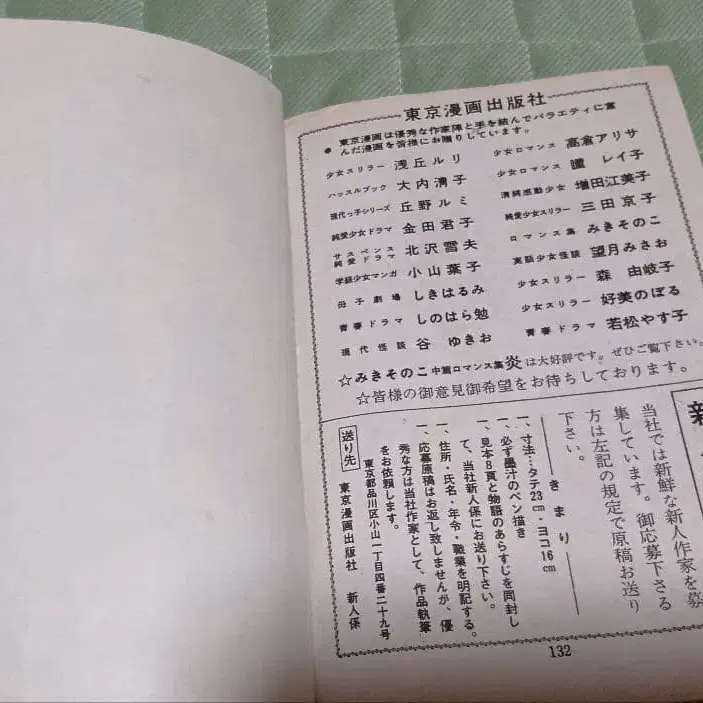 東京漫画出版社
● 東京漫画は優秀な作家陣と手を結んでバラエティに富
んだ漫画を皆様にお贈りしています。
少女スリラー 浅丘ルリ
ハッスルブック 大内清子
現代っ子シリーズ 丘野ルミ
純愛少女ドラマ 金田君子
サスペンス純愛ドラマ 北沢雪夫
学級少女マンガ 小山葉子
母子劇場 しきはるみ
青春ドラマ しのはら勉
現代怪談 谷ゆきお
少女ロマンス 高倉アリサ
少女ロマンス 譜レイ子
清純感動少女 増田江美子
純愛少女スリラー 三田京子
ロマンス集 みきそのこ
実話少女怪談 望月みさお
少女スリラー 森由岐子
少女スリラー 好美のぼる
青春ドラマ 若松やす子
☆みきそのこ中篇ロマンス集炎は大好評です。ぜひご覧下さい。
☆皆様の御意見御希望をお待ちしております。
新
当社では新鮮な新人作家を募
集しています。御応募下さる
方は左記の規定で原稿お送り
下さい。
きまり
一、寸法…タテ23cm・ヨコ16cm
一、必ず墨汁のペン描き
一、見本8頁と物語のあらすじを同封し
て、当社新人係にお送り下さい。
一、住所・氏名・年令・職業を明記する。
一、応募原稿はお返し致しませんが、優
秀な方は当社作家として、作品執筆
をお依頼します。
送り先
東京都品川区小山一丁目四番二十九号
東京漫画出版社 新人係
132